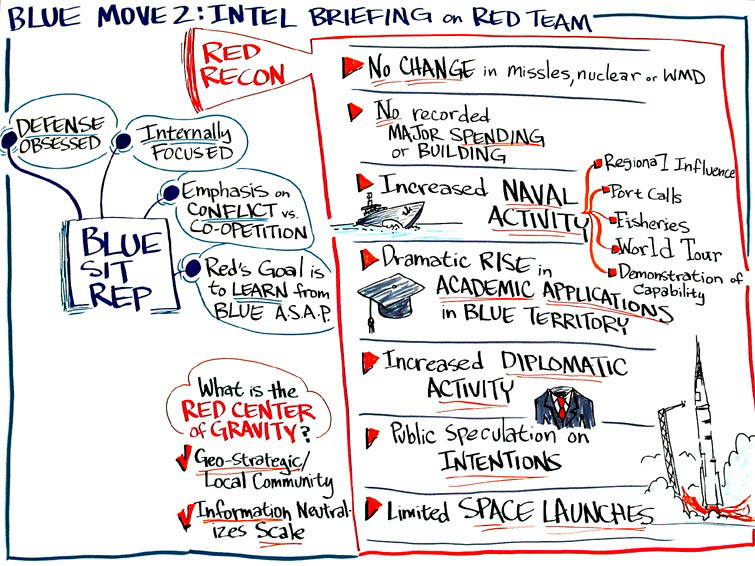 BLUE MOVE 2: INTEL BRIEFING on RED TEAM
RED
RECON
No CHANGE in missles, nuclear or WMD
No recorded
MAJOR SPENDING
or BUILDING
Increased NAVAL
ACTIVITY
Regional Influence
Port Calls
Fisheries
World Tour
Demonstration of
Capability
Dramatic RISE in
ACADEMIC APPLICATIONS
in BLUE TERRITORY
Increased DIPLOMATIC
ACTIVITY
Public Speculation on
INTENTIONS
Limited SPACE LAUNCHES
DEFENSE
OBSESSED
Internally
FOCUSED
Emphasis on
CONFLICT vs.
CO-OPETITION
Red's Goal is
to LEARN from
BLUE A.S.A.P.
BLUE
SIT
REP
What is the
RED CENTER
of GRAVITY?
Geo-strategic/
Local Community
Information Neutral-
izes Scale